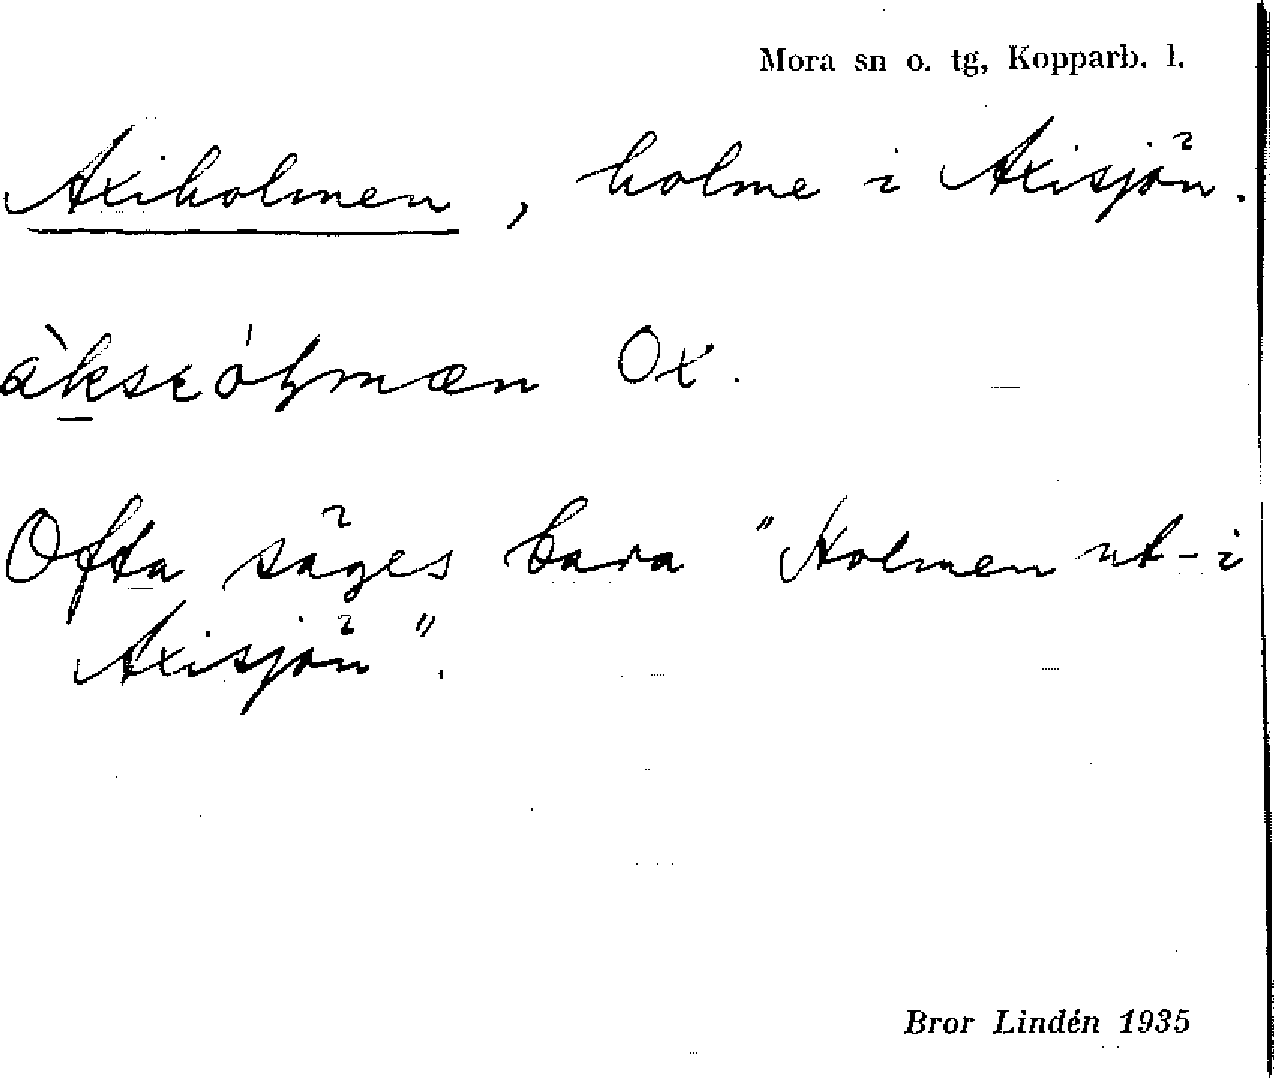 Mora sn o. tg, Kopparb. l.
Axiholmen, holme i Axisjön.
Ox.
Ofta säges bara "Holmen ut-i
Axisjön".
Bror Lindén 1935